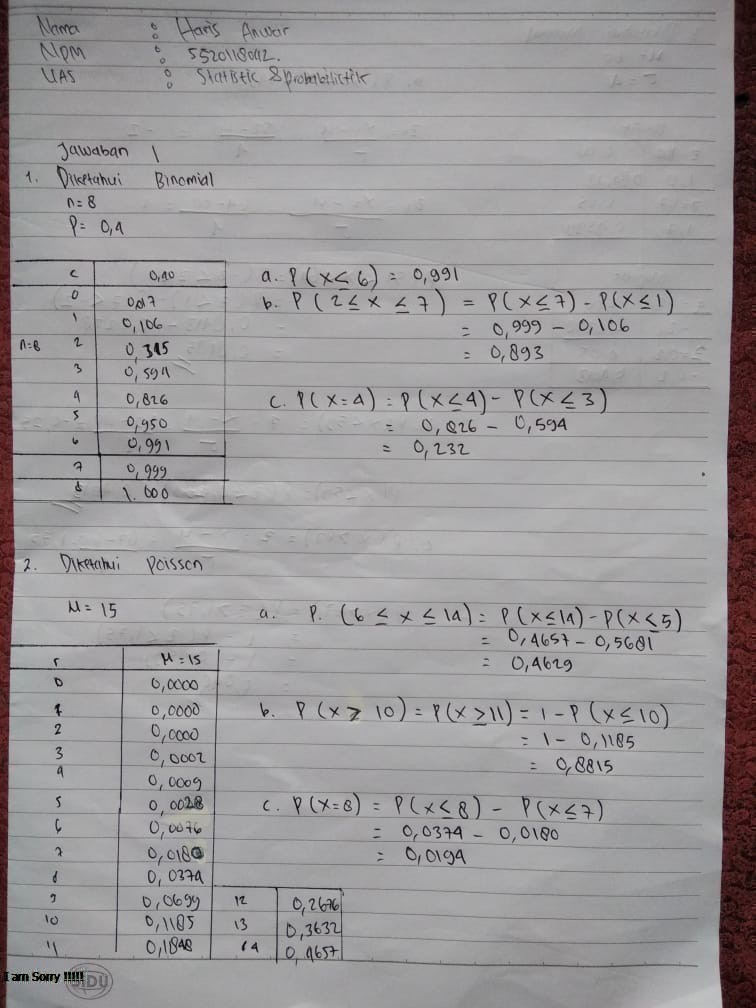 Nama : Haris Anwar
NPM : 5520118042.
UAS : Statistik & probabilistik
Jawaban 1
1. Diketahui Binomial
n=8
P= 0,4
c 0,40
0 0,017
1 0,106
n=8 2 0,315
3 0,594
4 0,826
5 0,950
6 0,991
7 0,999
8 1.000
a. P(x≤6) = 0,991
b. P(2≤x≤7) = P(x≤7)-P(x≤1)
= 0,999 - 0,106
= 0,893
c. P(x=4) = P(x≤4)- P(x≤3)
= 0,826 - 0,594
= 0,232
2. Diketahui Poisson
M= 15
r M=15
0 0,0000
1 0,0000
2 0,0000
3 0,0002
4 0,0009
5 0,0028
6 0,0076
7 0,0180
8 0,0374
9 0,0699
10 0,1185
11 0,1848
12 0,2676
13 0,3632
14 0,4657
a. P. (6 ≤ x ≤ 14) = P(x≤14)-P(x≤5)
= 0,4657 - 0,5681
= 0,4629
b. P(x≥10) = P(x≥11) = 1-P(x≤10)
= 1- 0,1185
= 0,8815
c. P(x=8) = P(x≤8) - P(x≤7)
= 0,0374 - 0,0180
= 0,0194
I am Sorry !!!!!
SIDU